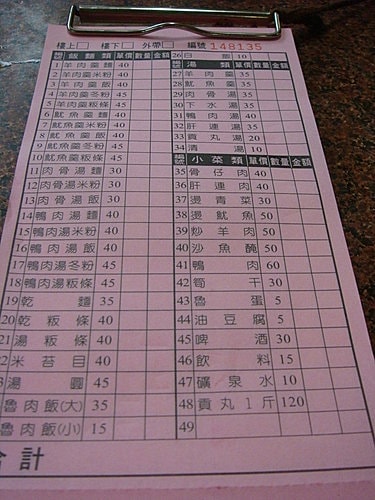 樓上□ 樓下□ 外帶□ 編號 148135
飯麵類 單價 數量 金額
1 羊肉羹麵 40
2 羊肉羹米粉 40
3 羊肉羹飯 40
4 羊肉羹冬粉 45
5 羊肉羹粄條 45
6 魷魚羹麵 40
7 魷魚羹米粉 40
8 魷魚羹飯 40
9 魷魚羹冬粉 45
10 魷魚羹粄條 45
11 肉骨湯麵 35
12 肉骨湯米粉 30
13 肉骨湯飯 35
14 鴨肉湯麵 40
15 鴨肉湯米粉 40
16 鴨肉湯飯 40
17 鴨肉湯冬粉 45
18 鴨肉湯粄條 45
19 乾麵 35
20 乾粄條 40
21 湯粄條 40
米苔目 40
湯圓 45
魯肉飯(大) 35
魯肉飯(小) 15
合計
26 白飯 10
編號 湯類 單價 數量 金額
27 羊肉羹 35
28 魷魚羹 35
29 肉骨湯 35
30 下水湯 35
31 鴨肉湯 40
32 肝連湯 35
33 貢丸湯 20
34 清湯 10
編號 小菜類 單價 數量 金額
35 骨仔肉 40
36 肝連肉 40
37 燙青菜 30
38 燙魷魚 50
39 炒羊肉 50
40 沙魚醃 50
41 鴨肉 60
42 筍干 30
43 魯蛋 5
44 油豆腐 5
45 啤酒 30
46 飲料 15
47 礦泉水 10
48 貢丸1斤 120
49